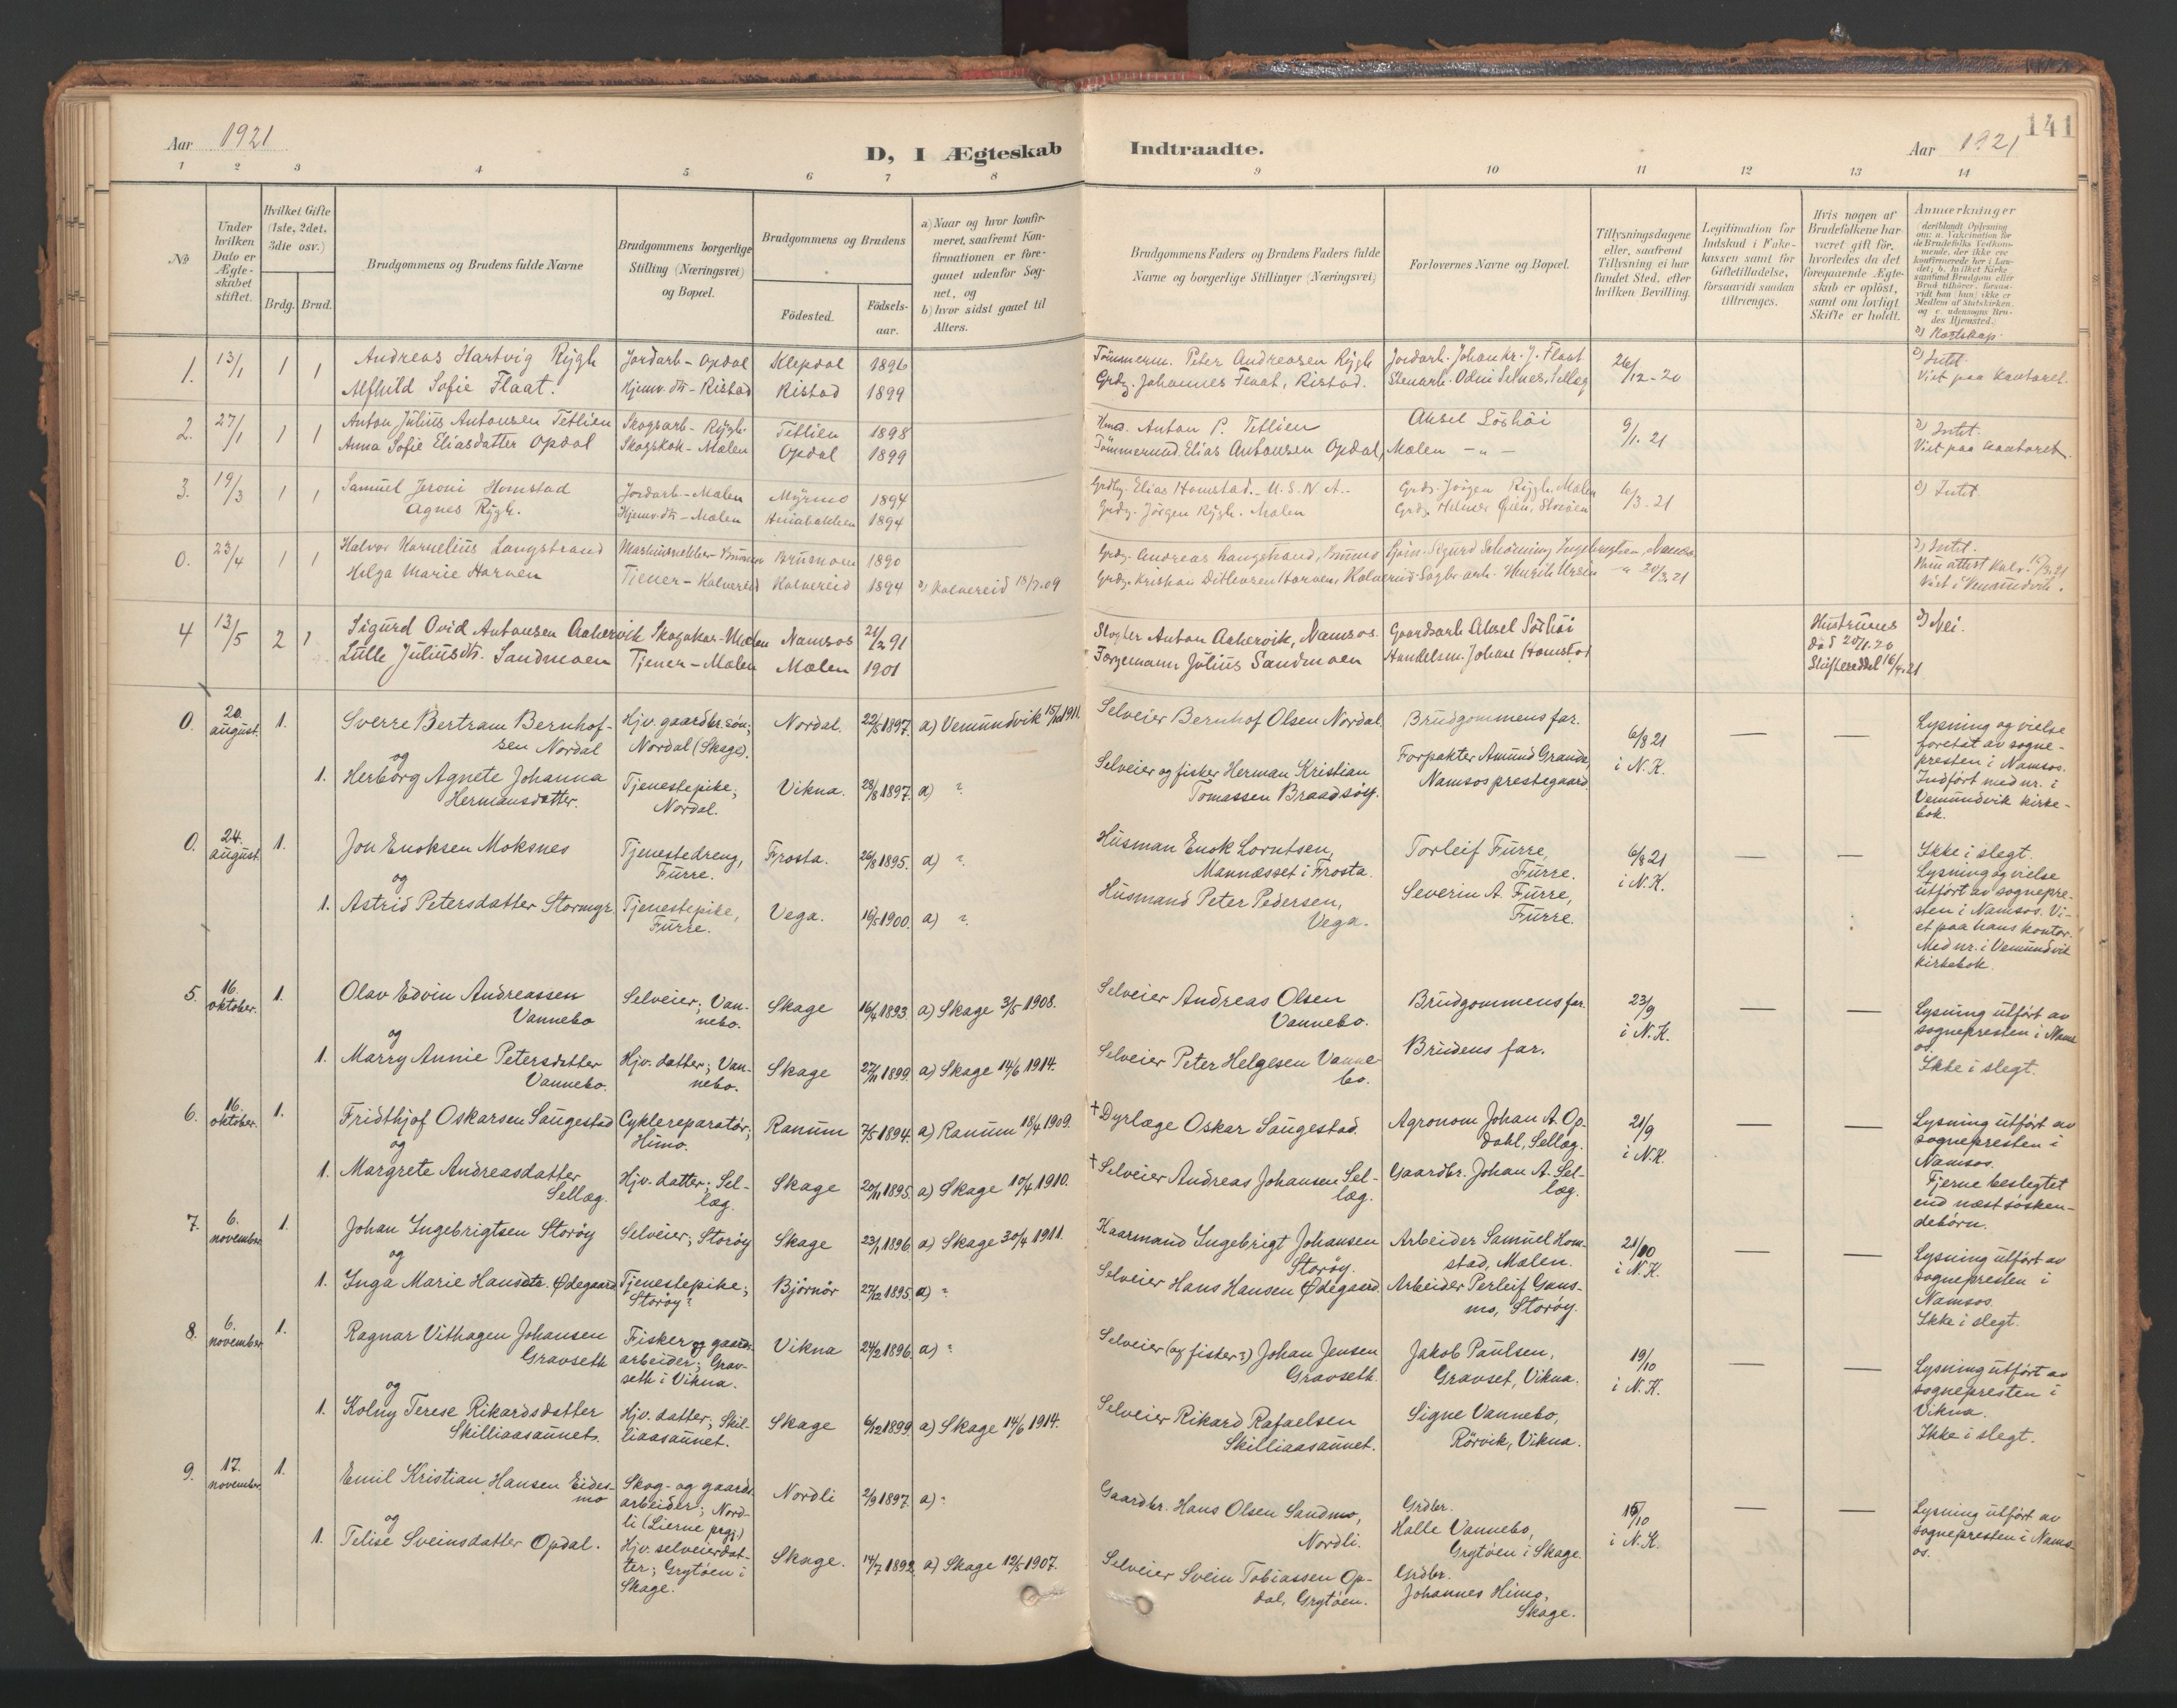 141
Aar 1921
D, I Ægteskab Indtraadte.
Aar 1921
1 2 3 4 5 6 7 8 9 10 11 12 13 14
No
Under hvilken Dato er Ægteskabet stiftet.
Hvilket Gifte (1ste, 2det, 3die osv.)
Brdg. Brud.
Brudgommens og Brudens fulde Navne
Brudgommens borgerlige Stilling (Næringsvei) og Bopæl.
Brudgommens og Brudens
Fødested. Fødselsaar.
a) Naar og hvor konfirmeret, saafremt Konfirmationen er foregaaet udenfor Sognet, og
b) hvor sidst gaaet til Alters.
Brudgommens Faders og Brudens Faders fulde Navne og borgerlige Stillinger (Næringsvei)
Forlovernes Navne og Bopæl.
Tillysningsdagene eller, saafremt Tillysning ei har fundet Sted, efter hvilken Bevilling.
Legitimation for Indskud i Enkekassen samt for Giftetilladelse, forsaavidt saadan tiltrænges.
Hvis nogen af Brudefolkene har været gift før, hvorledes da det foregaaende Ægteskab er opløst, samt om lovligt Skifte er holdt.
Anmærkninger
1. 13/1 1 1 Andreas Hartvig Rygh Jordarb - Opdal Klepdal 1896 Tømmerm. Peter Andreasen Rygh Jordarb. Johan kr. J. Flaat 26/12-20 Intet.
Alfhild Sofie Flaat. Hjemv. dtr - Ristad Ristad 1899 Grdbr. Johannes Flaat, Ristad. Stenarb. Odin Selnes, Sellæg Viet paa kontoret.
2. 27/1 1 1 Anton Julius Antonsen Tetlien Skogsarb - Rygh. Tetlien 1898 Hmd. Anton P. Tetlien Aksel Sörhöi 9/1. 21 Intet.
Anna Sofie Eliasdatter Opdal Skogskok - Mælen Opdal 1899 Tømmermd. Elias Antonsen Opdal, Mælen - " - Viet paa kontoret.
3. 19/3 1 1 Samuel Jeroni Homstad Jordarb - Mælen Myrmo 1894 Elias Homstad. - U.S.N.A. Grdbr. Jørgen Rygh. Mælen 6/3-21 Intet.
Agnes Rygh. Hjemv. dtr - Mælen 1894 Jørgen Rygh. Mælen
0. 23/4 1 1 Halvor Kornelius Langstrand 1890 Andreas Langstrand, Intet.
Helga Marie Horven Tjener - Kolvereid Kolvereid 1894 Kolvereid 18/7.09 Kristian Ditlevsen Horven, Kolvereid 20/3.21
4 13/5 2 1 Sigurd Ovid Antonsen Aakervik Mælen Namsos 21/2 91 Anton Aakervik, Namsos. Gaardsarb Aksel Sörhöi Hustruens død 20/1.20 Nei.
Lulle Juliusdtr. Sandmoen Tjener - Mælen Mælen 1901 Forgemann Julius Sandmoen Handelsm. Johan Homstad Skifteseddel 16/4.21
0. 20. august. 1. Sverre Bertram Bernhof- Hjv. gaardbr.søn; Nordal. 22/5 1897. a) Vemundvik 15/10 1911. Selveier Bernhof Olsen Nordal. Brudgommens far. 6/8 21 — — Lysning og vielse
sen Nordal Nordal (Skage). i N.K. foretat av sogne-
og presten i Namsos.
1. Herborg Agnete Johanna Tjenestepike, Vikna. 28/8 1897. a) ? Selveier og fisker Herman Kristian Forpakter Amund Grande, Indført med nr. i
Hermansdatter. Nordal. Tomassen Braadsøy. Namsos prestegaard. Vemundvik kirke-
bok.
0. 24. august. 1. Jon Enoksen Moksnes Tjenestedreng, Frosta. 26/8 1895. a) ? Husman Enok Lorntsen, Torleif Furre, 6/8 21 — — Ikke i slegt.
og Furre. Mannæsset i Frosta. Furre. i N.K. Lysning og vielse
1. Astrid Petersdatter Stormyr. Tjenestepike, Vega. 16/5 1900. a) ? Husmand Peter Pedersen, Severin A. Furre, utført av sognepre-
Furre. Vega. Furre. sten i Namsos. Vi-
et paa hans kontor.
Med nr. i Vemundvik
kirkebok.
5. 16. oktober. 1. Olav Edvin Andreassen Selveier; Van- Skage 16/4 1893. a) Skage 3/5 1908. Selveier Andreas Olsen Brudgommens far. 23/9 — — Lysning utført av
Vannebo nebo. Vannebo. i N.K. sognepresten i Nams-
og os.
1. Marry Annie Petersdatter Hjv. datter; Van- Skage 27/11 1899. a) Skage 14/6 1914. Selveier Peter Helgesen Vanne- Brudens far. Ikke i slegt.
Vannebo. nebo. bo.
6. 16. oktober. 1. Fridthjof Oskarsen Saugestad Cyklereparatør; Ranum 7/5 1894. a) Ranum 18/4 1909. † Dyrlæge Oskar Saugestad. Agronom Johan A. Op- 21/9 — — Lysning utført av
og Himo. dahl, Sellæg. i N.K. sognepresten i
1. Margrete Andreasdatter Hjv. datter; Sel- Skage 20/11 1895. a) Skage 10/4 1910. † Selveier Andreas Johansen Sel- Gaardbr. Johan A. Sel- Namsos.
Sellæg. læg. læg. læg. Fjerne beslegtet
end næstsøsken-
debørn.
7. 6. november. 1. Johan Ingebrigtsen Storøy Selveier; Storøy Skage 23/1 1896. a) Skage 30/4 1911. Kaarmand Ingebrigt Johansen Arbeider Samuel Hom- 21/10 — — Lysning utført av
og Storøy. stad, Mælen. i N.K. sognepresten i
1. Inga Marie Hansdtr. Ødegaard Tjenestepike; Bjørnør 27/12 1895. a) ? Selveier Hans Hansen Ødegaard. Arbeider Perleif Gans- Namsos.
Storøy? mo, Storøy. Ikke i slegt.
8. 6. november. 1. Ragnar Vithagen Johansen Fisker og gaards- Vikna 24/2 1896. a) ? Selveier (og fisker?) Johan Jensen Jakob Paulsen, 19/10 — — Lysning utført av
Gravseth arbeider; Grav- Gravseth. Gravset, Vikna. i N.K. sognepresten i
og seth i Vikna. Vikna.
1. Kolny Terese Rikardsdatter Hjv. datter; Skil- Skage 6/12 1899. a) Skage 14/6 1914. Selveier Rikard Rafaelsen Signe Vannebo, Ikke i slegt.
Skilliaasaunet. liaasaunet. Skilliaasaunet. Rörvik, Vikna.
9. 17. november. 1. Emil Kristian Hansen Eides- Skog- og gaards- Nordli 2/9 1897. a) ? Gaardbr. Hans Olsen Sandmo, Grdbr. 15/10 — — Lysning utført av
mo arbeider; Nord- Nordli. Halle Vannebo, i N.K. sognepresten i Nams-
og li (Lierne prgj.) Grytøen i Skage. os.
1. Telise Sveinsdatter Opdal. Hjv. selveierdat- Skage. 14/7 1892. a) Skage 12/5 1907. Selveier Svein Tobiassen Op- Grdbr.
ter; Grytøen i dal, Grytøen. Johannes Himo,
Skage. Skage.